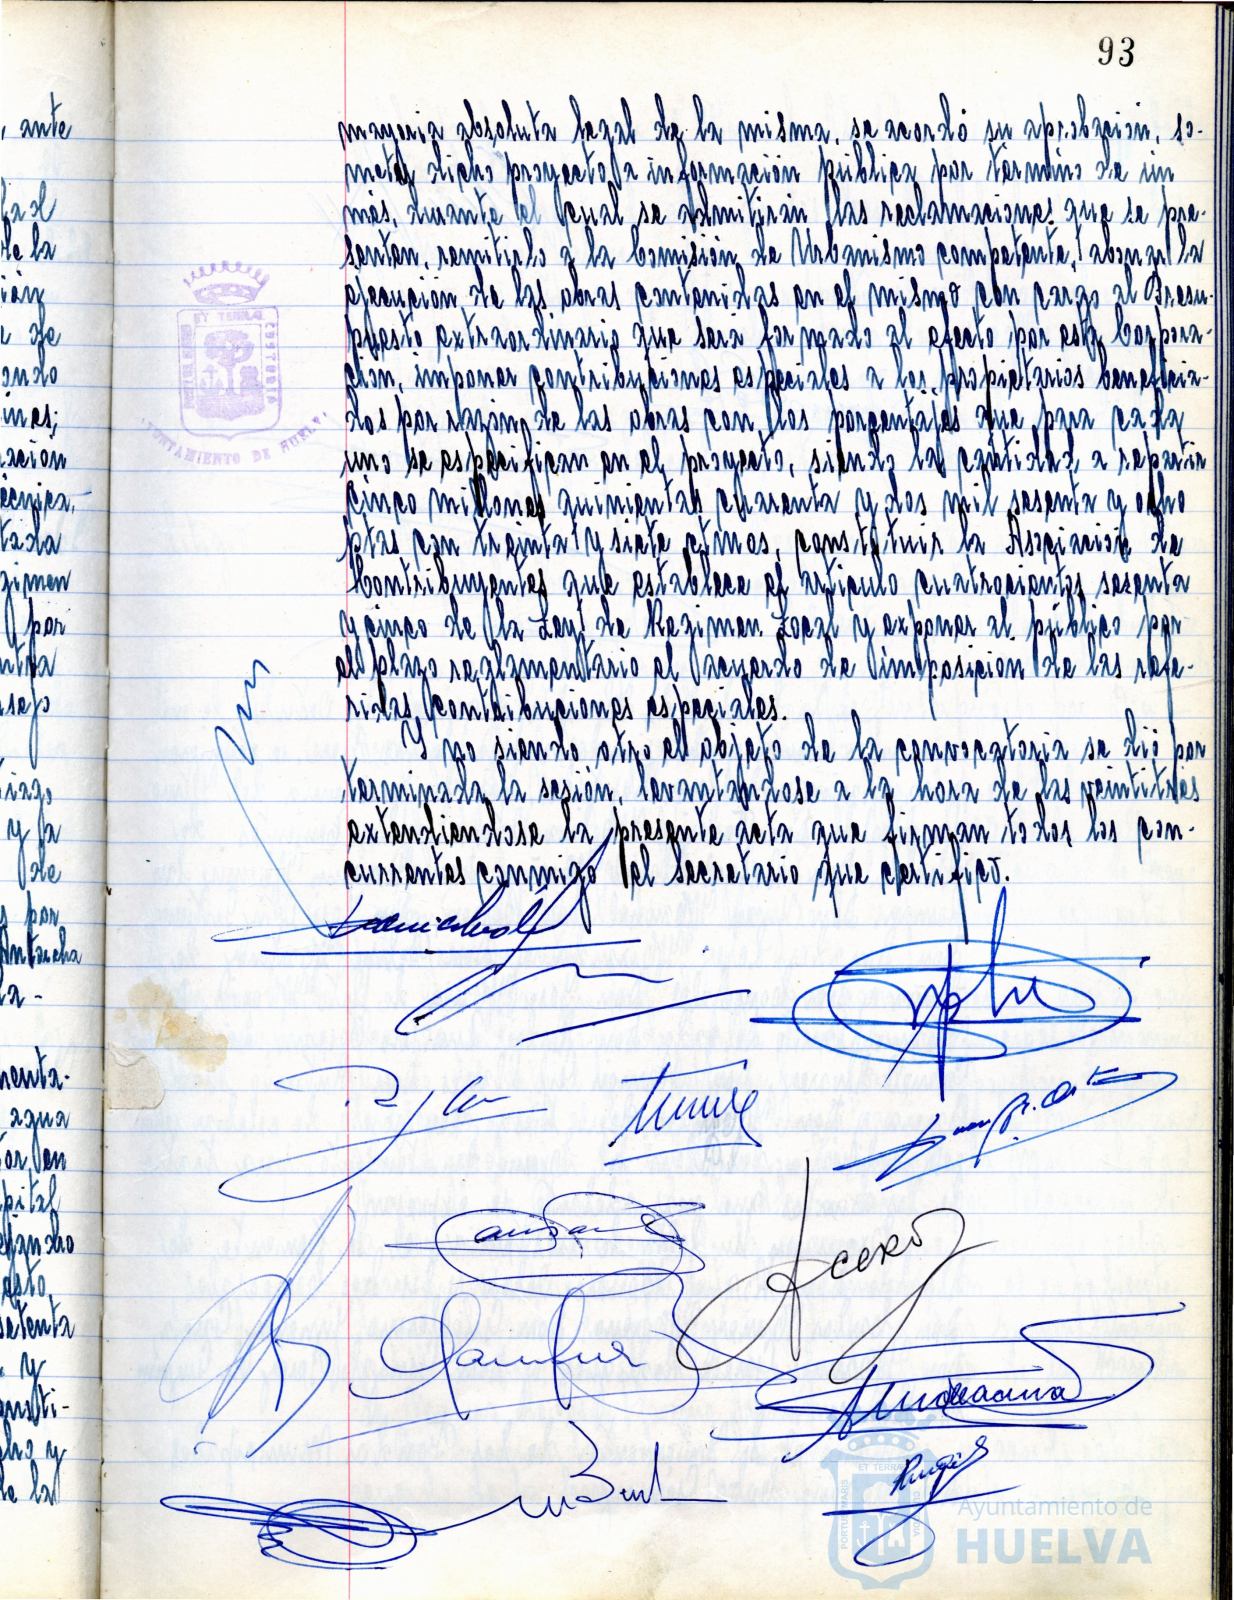 93
, ante
mayoria absoluta legal de la misma, se acordó su aprobación, so-
meter dicho proyecto a información pública por término de un
mes, durante el cual se admitirán las reclamaciones que se pre-
senten, remitirlo a la Comisión de Urbanismo competente, abonar la
ejecución de las obras contenidas en el mismo con cargo al Presu-
puesto extraordinario que será formado al efecto por esta Corpora-
ción, imponer contribuciones especiales a los propietarios beneficia-
dos por razón de las obras con los porcentajes que para cada
uno se especifican en el proyecto, siendo la cantidad a repartir
cinco millones quinientas cuarenta y dos mil sesenta y ocho
ptas con treinta y siete ctmos, constituir la Asociación de
Contribuyentes que establece el artículo cuatrocientos sesenta
y cinco de la Ley de Regimen Local y exponer al público por
el plazo reglamentario el acuerdo de imposición de las refe-
ridas contribuciones especiales.
Y no siendo otro el objeto de la convocatoria se dió por
terminada la sesión, levantandose a la hora de las veintitres
extendiendose la presente acta que firman todos los con-
currentes conmigo el Secretario que certifico.
AYUNTAMIENTO DE HUELVA
Acero
Ayuntamiento de
HUELVA